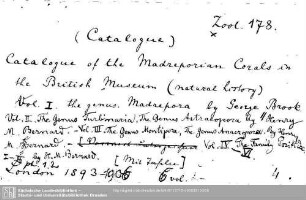 Zool. 178.
x
(Catalogue)
Catalogue of the Madreporian Corals in
the British Museum (natural history)
Vol. I. the genus. Madrepora by George Brook
Vol. II. The Genus Turbinaria. The Genus Astraeopora by Henry
M. Bernard. Vol. III. The Genus Montipora, the Genus Anacropora. By Henry
M. Bernard. Vol. IV. The Family
by H. M. Bernard. [Mit Tafeln]
London 1893-1906 6 vol. 4